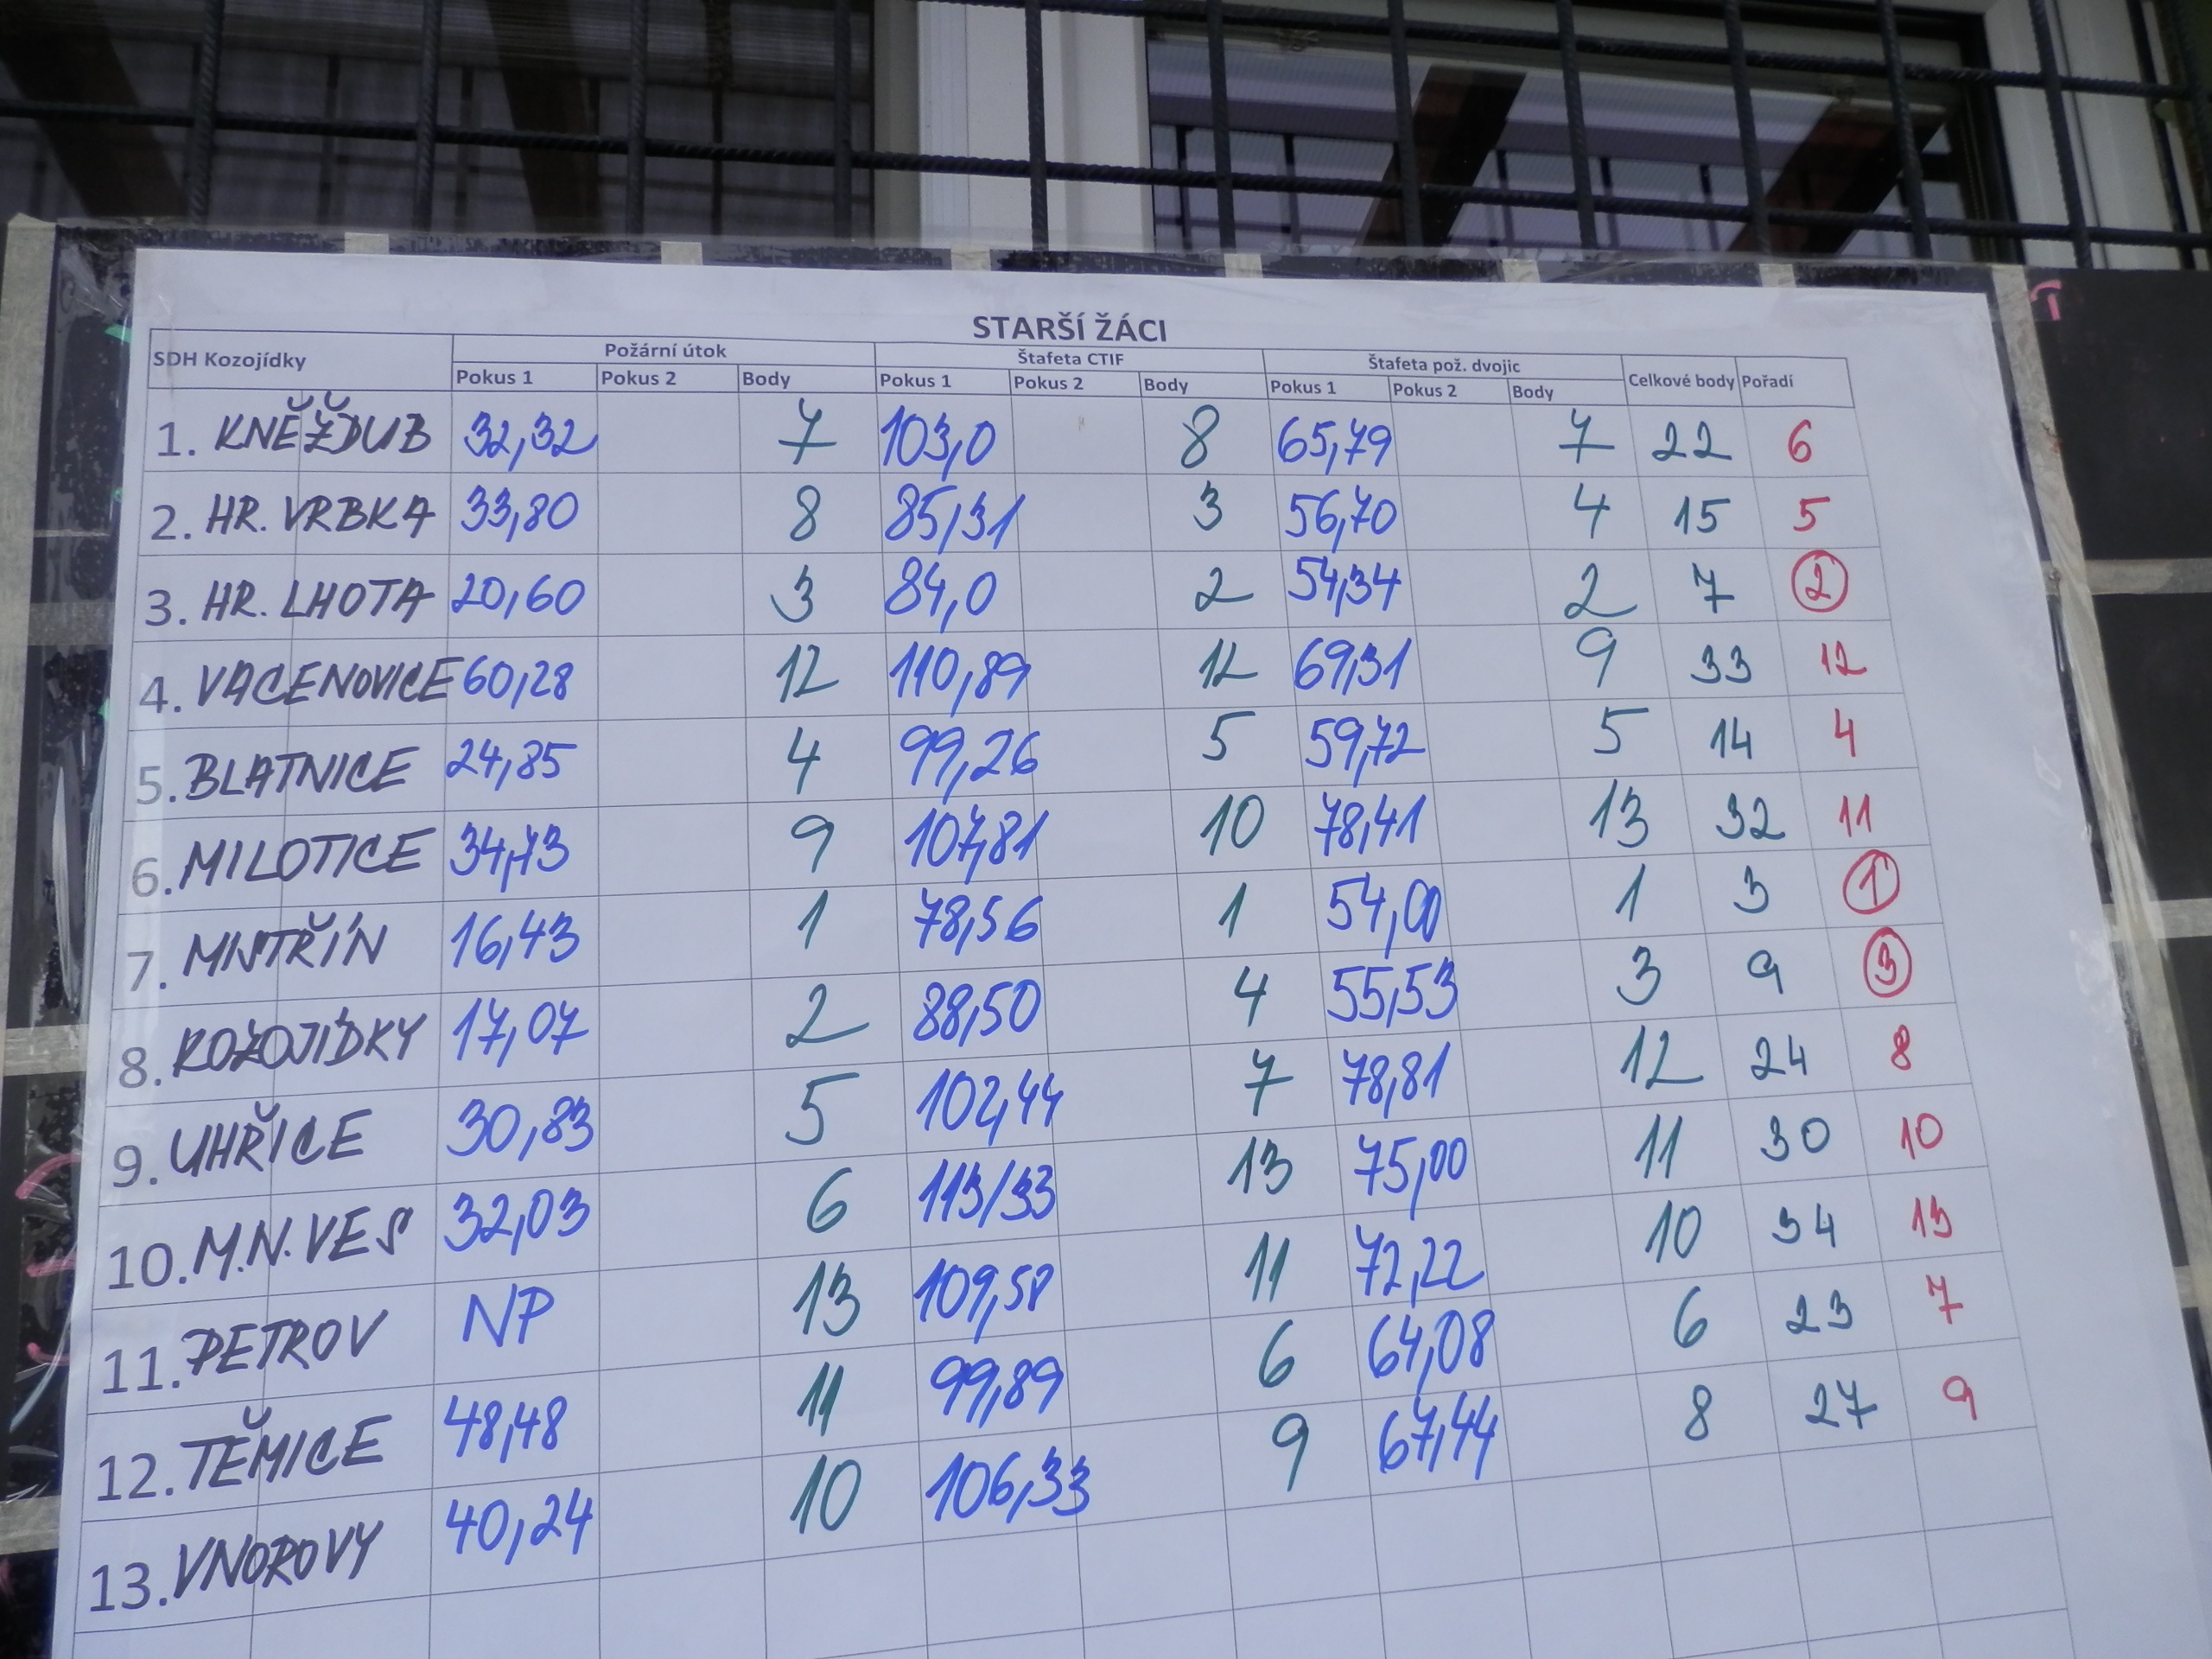 STARŠÍ ŽÁCI
SDH Kozojídky Požární útok Štafeta CTIF Štafeta pož. dvojic Celkové body Pořadí
Pokus 1 Pokus 2 Body Pokus 1 Pokus 2 Body Pokus 1 Pokus 2 Body
1. KNĚŽDUB 32,32 7 103,0 8 65,79 7 22 6
2. HR. VRBKA 33,80 8 85,31 3 56,70 4 15 5
3. HR. LHOTA 20,60 3 84,0 2 54,34 2 7 2
4. VACENOVICE 60,28 12 110,89 12 69,31 9 33 12
5. BLATNICE 24,85 4 99,26 5 59,72 5 14 4
6. MILOTICE 34,73 9 107,81 10 78,41 13 32 11
7. MISTŘÍN 16,43 1 78,56 1 54,00 1 3 1
8. KOZOJÍDKY 17,07 2 88,50 4 55,53 3 9 3
9. UHŘICE 30,83 5 102,44 7 78,81 12 24 8
10. M.N. VES 32,03 6 113/33 13 75,00 11 30 10
11. PETROV NP 13 109,58 11 72,22 10 34 13
12. TĚMICE 48,48 11 99,89 6 64,08 6 23 7
13. VNOROVY 40,24 10 106,33 9 67,44 8 27 9